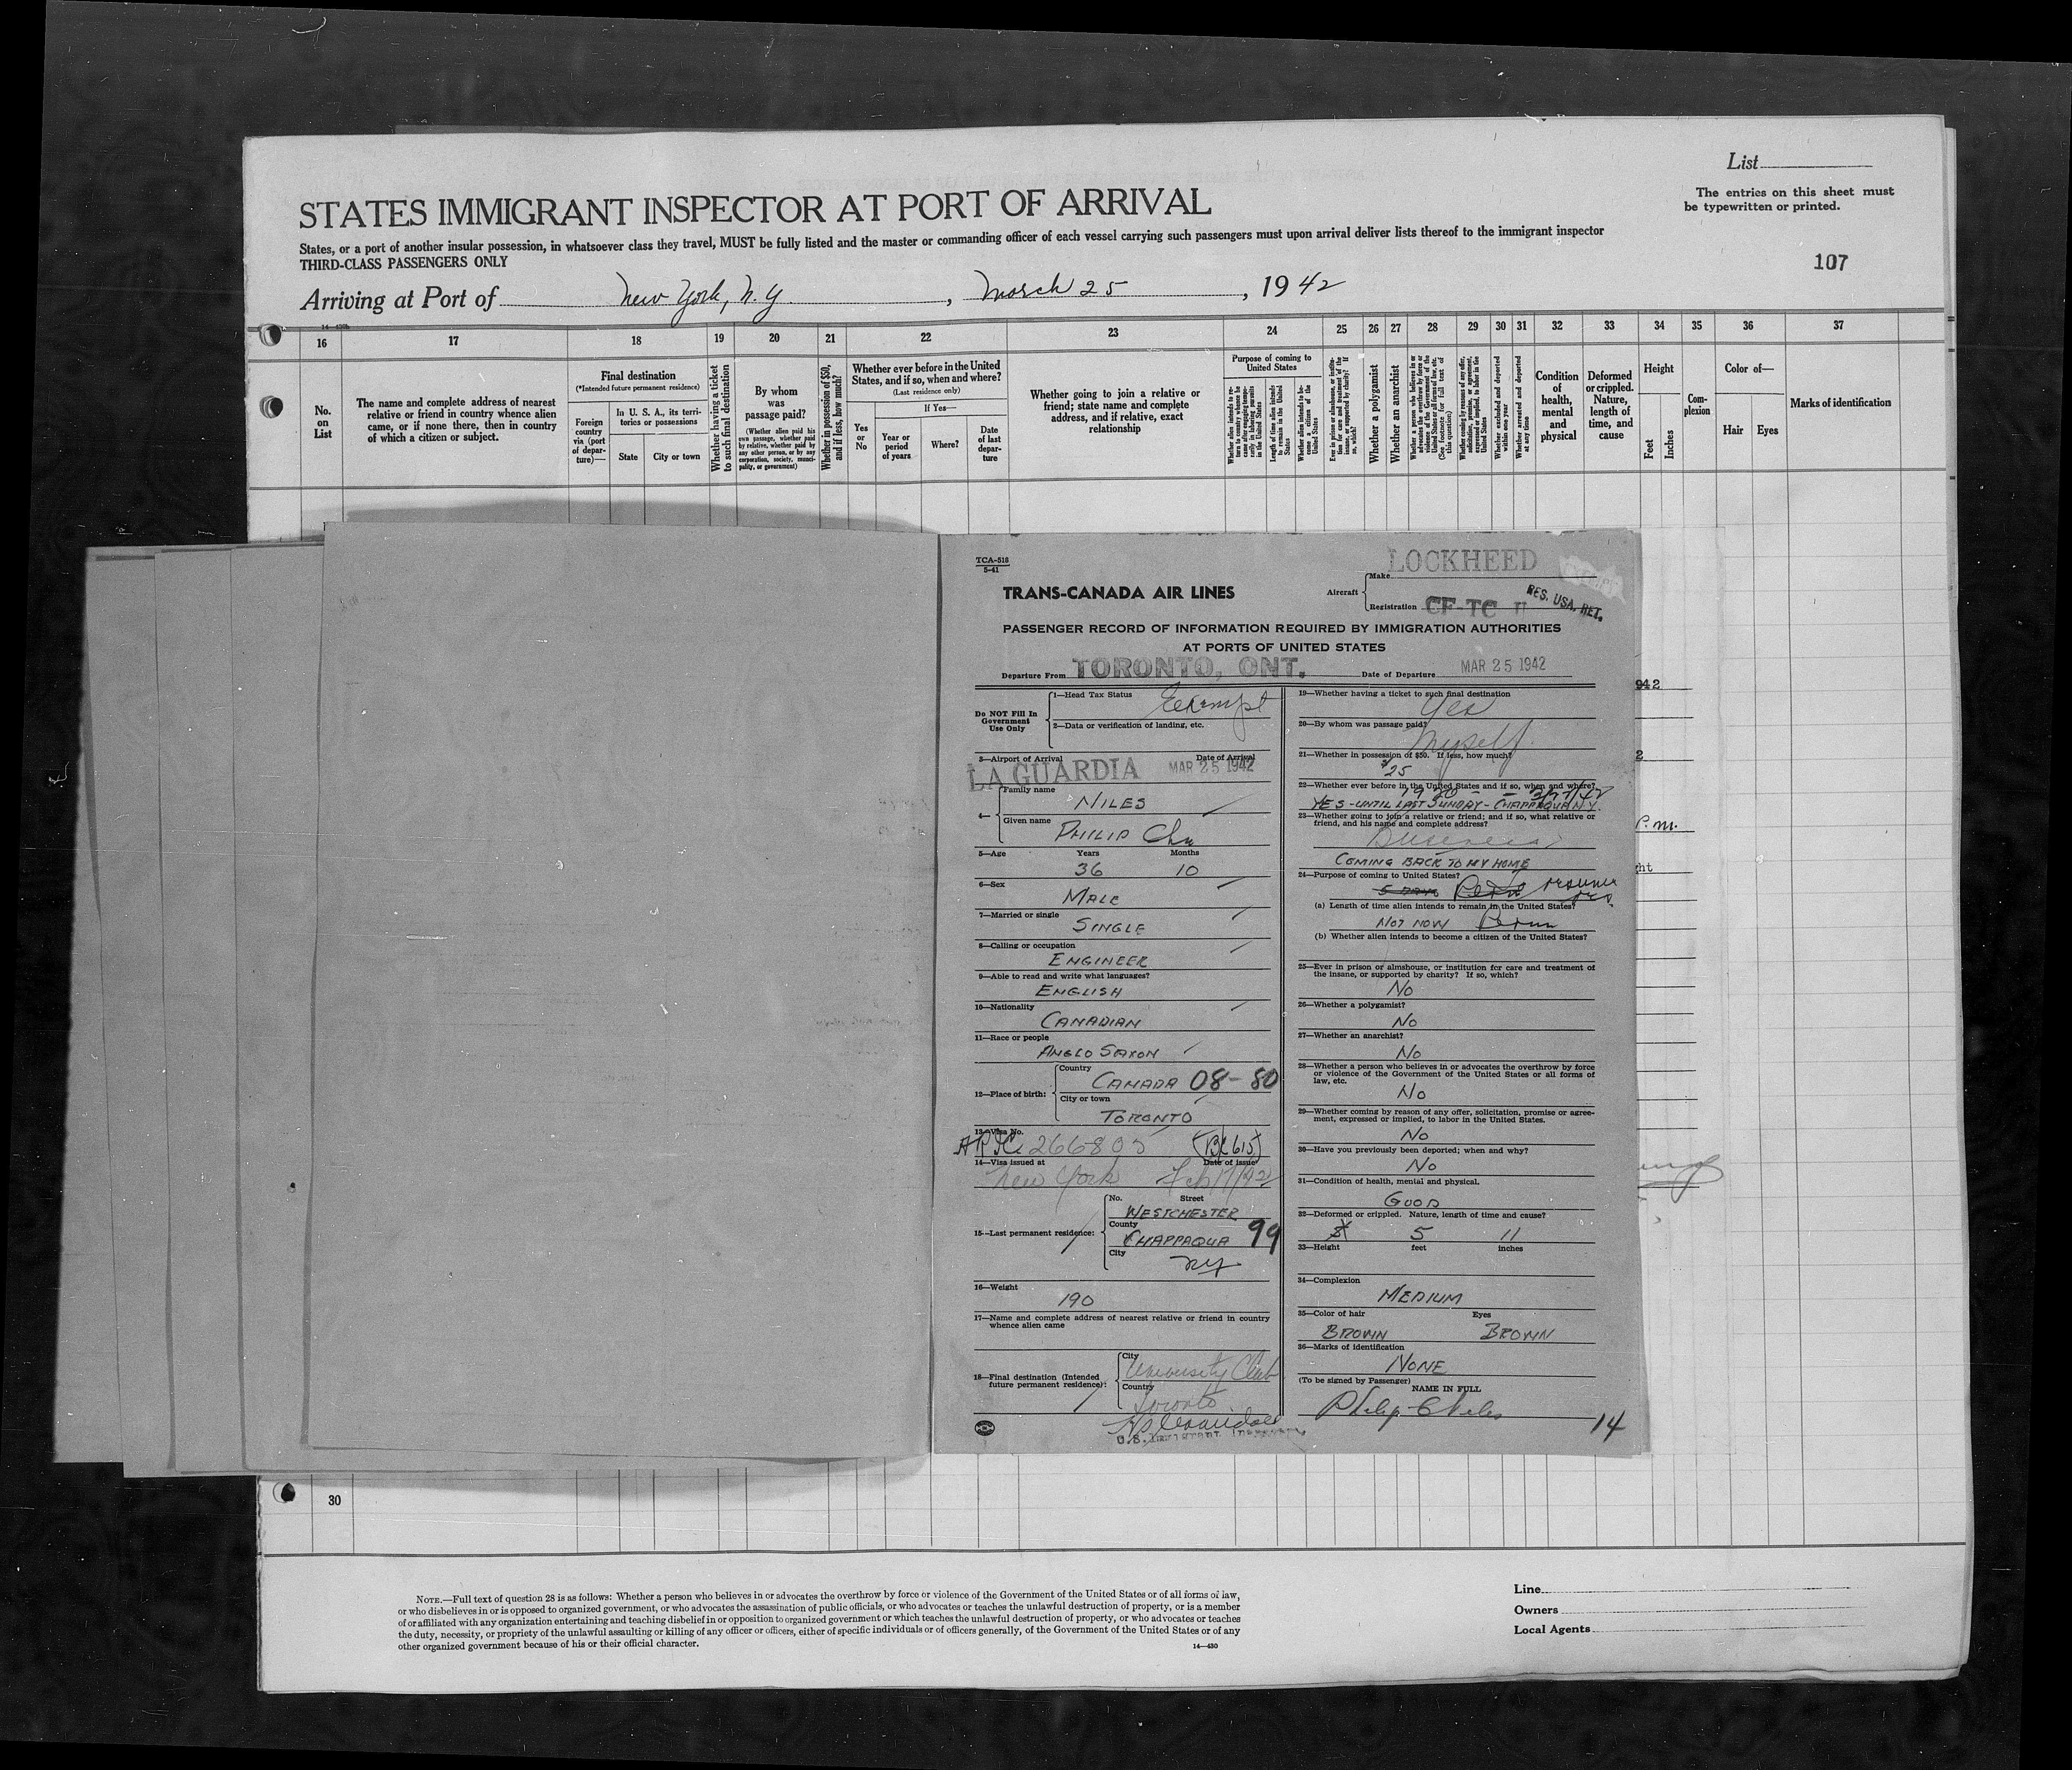 List
The entries on this sheet must
be typewritten or printed.
STATES IMMIGRANT INSPECTOR AT PORT OF ARRIVAL
States, or a port of another insular possession, in whatsoever class they travel, MUST be fully listed and the master or commanding officer of each vessel carrying such passengers must upon arrival deliver lists thereof to the immigrant inspector
THIRD-CLASS PASSENGERS ONLY
107
Arriving at Port of New York, N.Y., March 25, 1942
16 17 18 19 20 21 22 23 24 25 26 27 28 29 30 31 32 33 34 35 36 37
No. on List
The name and complete address of nearest relative or friend in country whence alien came, or if none there, then in country of which a citizen or subject.
Final destination
(*Intended future permanent residence)
Foreign country via (port of departure)—
In U. S. A., its territories or possessions
State
City or town
Whether having a ticket to such final destination
By whom was passage paid?
(Whether alien paid his own passage, whether paid by relative, whether paid by any other person, or by any corporation, society, municipality, or government)
Whether in possession of $50, and if less, how much?
Whether ever before in the United States, and if so, when and where?
(Last residence only)
If Yes—
Yes or No
Year or period of years
Where?
Date of last departure
Whether going to join a relative or friend; state name and complete address, and if relative, exact relationship
Purpose of coming to United States
Length of time alien intends to remain in the United States
Whether alien intends to become a citizen of the United States
Whether a polygamist
Whether an anarchist
Whether arrested and deported at any time
Condition of health, mental and physical
Deformed or crippled. Nature, length of time, and cause
Height
Feet
Inches
Complexion
Color of—
Hair
Eyes
Marks of identification
TCA-518
5-41
TRANS-CANADA AIR LINES
Aircraft
Make LOCKHEED
Registration CF-TC
RES. USA. RET.
PASSENGER RECORD OF INFORMATION REQUIRED BY IMMIGRATION AUTHORITIES
AT PORTS OF UNITED STATES
Departure From TORONTO, ONT. Date of Departure MAR 25 1942
Do NOT Fill In
Government
Use Only
1—Head Tax Status Exempt
2—Data or verification of landing, etc.
3—Airport of Arrival Date of Arrival
LA GUARDIA MAR 25 1942
4— Family name
NILES
Given name
PHILIP
5—Age Years Months
36 10
6—Sex
MALE
7—Married or single
SINGLE
8—Calling or occupation
ENGINEER
9—Able to read and write what languages?
ENGLISH
10—Nationality
CANADIAN
11—Race or people
ANGLO SAXON
12—Place of birth:
Country
CANADA 08-80
City or town
TORONTO
13—Visa No.
266805
14—Visa issued at Date of issue
New York
15—Last permanent residence:
No. Street
WESTCHESTER
County
CHAPPAQUA 99
City
NY
16—Weight
190
17—Name and complete address of nearest relative or friend in country
whence alien came
18—Final destination (Intended
future permanent residence):
City
University Club
Country
Toronto
U.S. Immigrant Inspector
19—Whether having a ticket to such final destination
Yes
20—By whom was passage paid?
Myself
21—Whether in possession of $50. If less, how much?
$25
22—Whether ever before in the United States and if so, when and where?
YES - UNTIL LAST SUNDAY - CHAPPAQUA N.Y.
23—Whether going to join a relative or friend; and if so, what relative or
friend, and his name and complete address?
Business
COMING BACK TO MY HOME
24—Purpose of coming to United States?
(a) Length of time alien intends to remain in the United States?
NOT NOW
(b) Whether alien intends to become a citizen of the United States?
25—Ever in prison or almshouse, or institution for care and treatment of
the insane, or supported by charity? If so, which?
No
26—Whether a polygamist?
No
27—Whether an anarchist?
No
28—Whether a person who believes in or advocates the overthrow by force
or violence of the Government of the United States or all forms of
law, etc.
No
29—Whether coming by reason of any offer, solicitation, promise or agree-
ment, expressed or implied, to labor in the United States.
No
30—Have you previously been deported; when and why?
No
31—Condition of health, mental and physical.
GOOD
32—Deformed or crippled. Nature, length of time and cause?
5 11
33—Height feet inches
34—Complexion
MEDIUM
35—Color of hair Eyes
BROWN BROWN
36—Marks of identification
NONE
(To be signed by Passenger)
NAME IN FULL
Philip C Niles
14
942
2
P.m.
ht
30
NOTE.—Full text of question 28 is as follows: Whether a person who believes in or advocates the overthrow by force or violence of the Government of the United States or of all forms of law,
or who disbelieves in or is opposed to organized government, or who advocates the assassination of public officials, or who advocates or teaches the unlawful destruction of property, or is a member
of or affiliated with any organization entertaining and teaching disbelief in or opposition to organized government or which teaches the unlawful destruction of property, or who advocates or teaches
the duty, necessity, or propriety of the unlawful assaulting or killing of any officer or officers, either of specific individuals or of officers generally, of the Government of the United States or of any
other organized government because of his or their official character.
14—430
Line
Owners
Local Agents